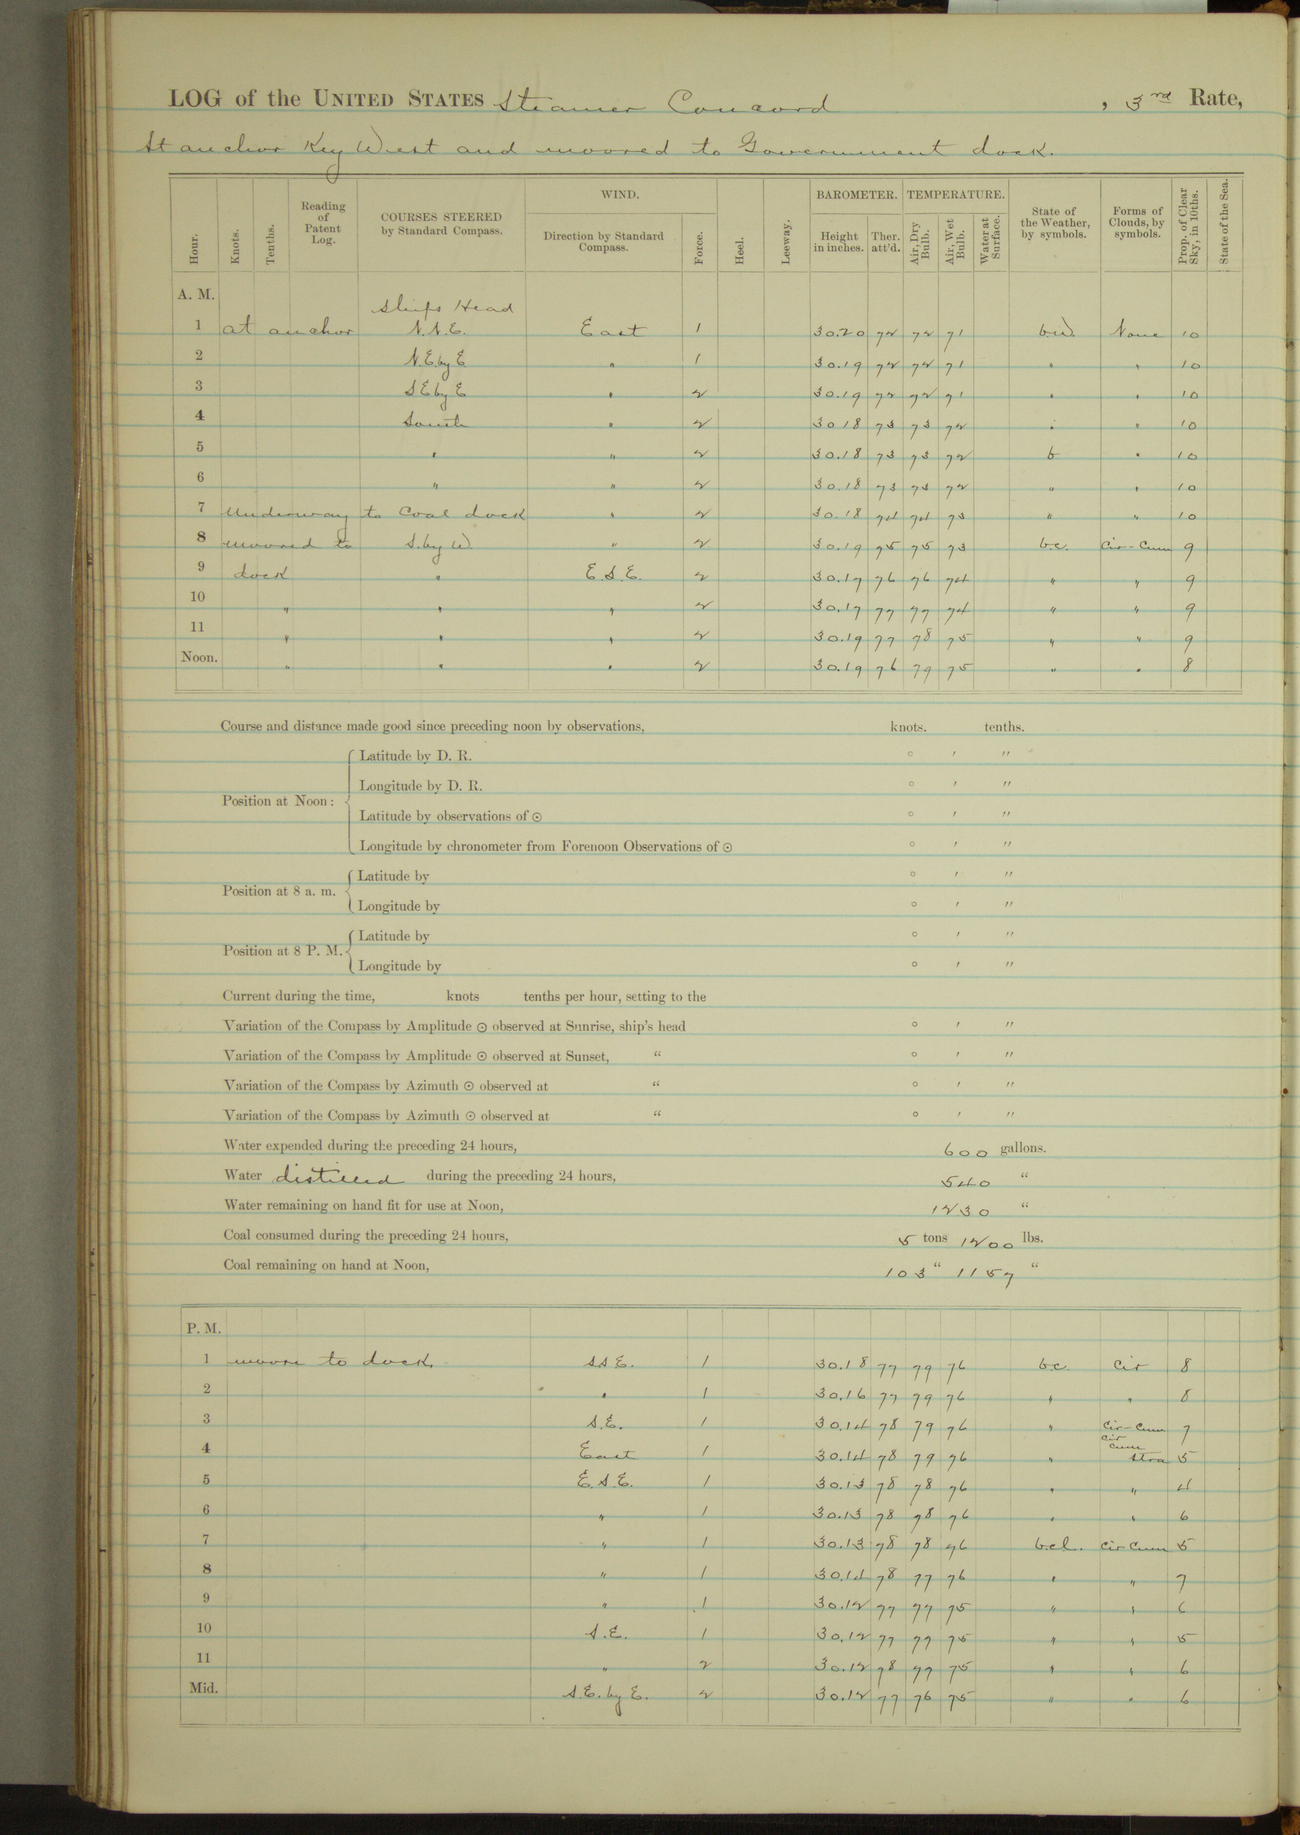 LOG of the UNITED STATES Steamer Concord , 3rd Rate,
At anchor Key West and moored to Government dock.
Hour. Knots. Tenths. Reading of Patent Log. COURSES STEERED by Standard Compass. WIND. Direction by Standard Compass. Force. Heel. Leeway. BAROMETER. Height in inches. Ther. att'd. TEMPERATURE. Air, Dry Bulb. Air, Wet Bulb. Water at Surface. State of the Weather, by symbols. Forms of Clouds, by symbols. Prop. of Clear Sky, in 10ths. State of the Sea.
A. M. Ships Head
1 at anchor N.N.E. East 1 30.20 72 72 71 None 10
2 N.E. by E " 1 30.19 72 72 71 " " 10
3 SE by E " 2 30.19 72 72 71 " " 10
4 South " 2 30.18 73 73 72 " " 10
5 " " 2 30.18 73 73 72 b " 10
6 " " 2 30.18 73 73 72 " " 10
7 Underway to Coal dock " 2 30.18 74 74 73 " " 10
8 moored to S. by W. " 2 30.19 75 75 73 b.c. Cir-Cum 9
9 dock " E.S.E. 2 30.17 76 76 74 " " 9
10 " " " 2 30.17 77 77 74 " " 9
11 " " " 2 30.19 77 78 75 " " 9
Noon. " " " 2 30.19 76 79 75 " " 8
Course and distance made good since preceding noon by observations, knots. tenths.
Position at Noon: Latitude by D. R. ° ′ ″
Longitude by D. R. ° ′ ″
Latitude by observations of ⊙ ° ′ ″
Longitude by chronometer from Forenoon Observations of ⊙ ° ′ ″
Position at 8 a. m. Latitude by ° ′ ″
Longitude by ° ′ ″
Position at 8 P. M. Latitude by ° ′ ″
Longitude by ° ′ ″
Current during the time, knots tenths per hour, setting to the
Variation of the Compass by Amplitude ⊙ observed at Sunrise, ship's head ° ′ ″
Variation of the Compass by Amplitude ⊙ observed at Sunset, " ° ′ ″
Variation of the Compass by Azimuth ⊙ observed at " ° ′ ″
Variation of the Compass by Azimuth ⊙ observed at " ° ′ ″
Water expended during the preceding 24 hours, 600 gallons.
Water distilled during the preceding 24 hours, 540 "
Water remaining on hand fit for use at Noon, 1230 "
Coal consumed during the preceding 24 hours, 5 tons 1200 lbs.
Coal remaining on hand at Noon, 103 " 1157 "
P. M.
1 moore to dock, S.S.E. 1 30.18 77 79 76 b.c. Cir 8
2 " 1 30.16 77 79 76 " " 8
3 S.E. 1 30.14 78 79 76 " Cir-Cum 7
4 East 1 30.14 78 79 76 " Cir Cum Stra 5
5 E.S.E. 1 30.13 78 78 76 " " 4
6 " 1 30.13 78 78 76 " " 6
7 " 1 30.13 78 78 76 b.c.l. Cir Cum 5
8 " 1 30.14 78 77 76 " " 7
9 " 1 30.12 77 77 75 " " 6
10 S.E. 1 30.12 77 77 75 " " 5
11 " 2 30.12 78 77 75 " " 6
Mid. S.E. by E. 2 30.12 77 76 75 " " 6